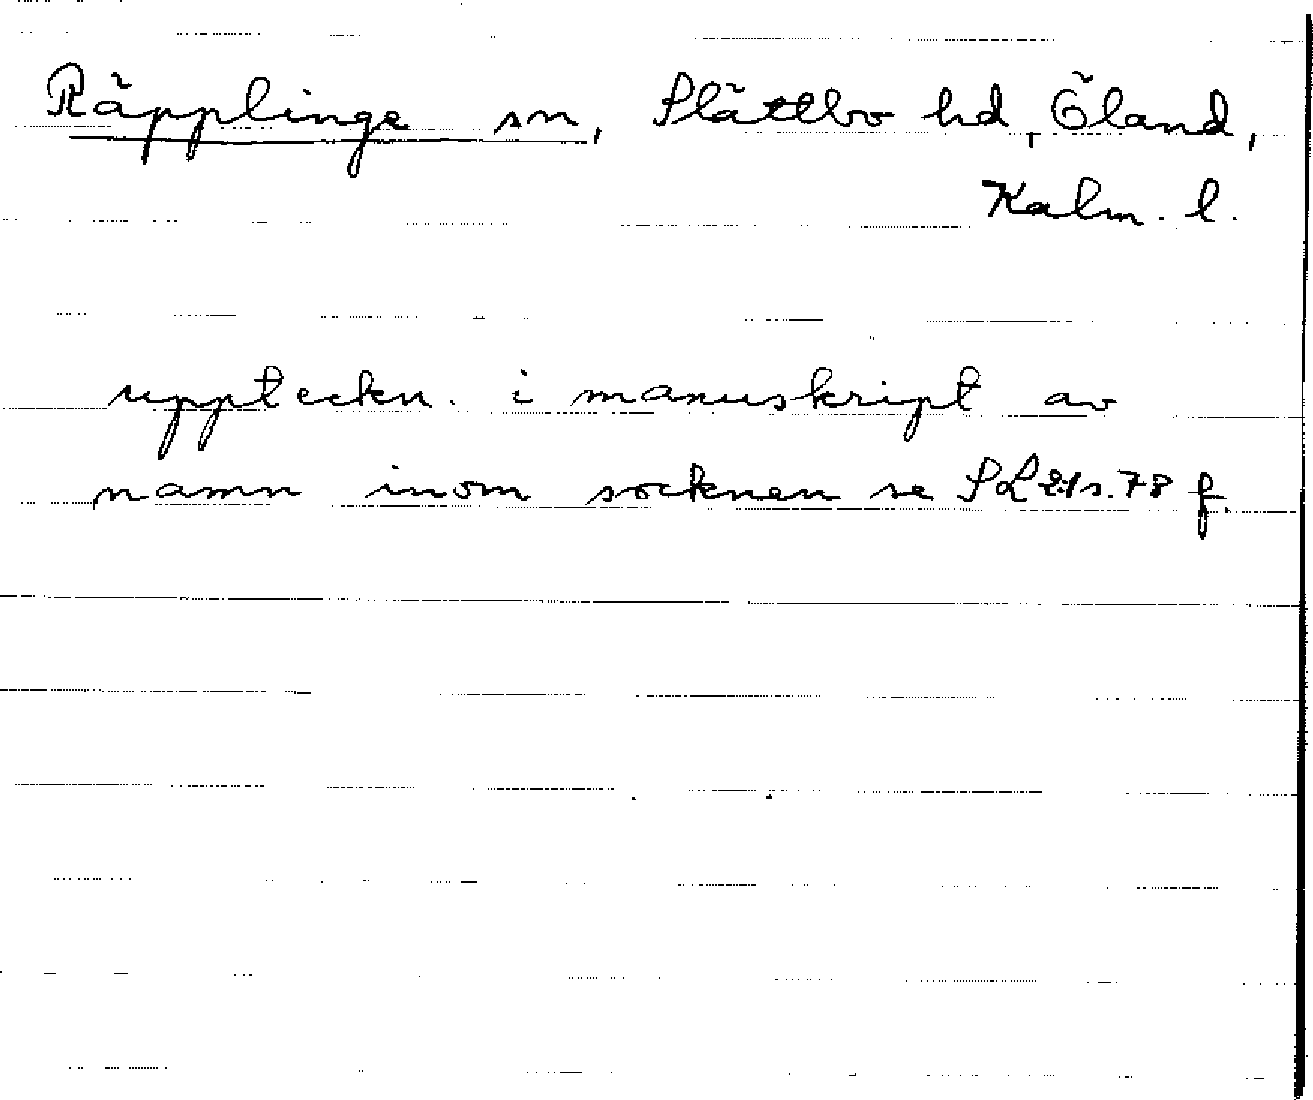 Räpplinge sn, Slättbo hd, Öland,
Kalm. l.
uppteckn. i manuskript av
namn inom socknen se SL 21 s. 78 f.